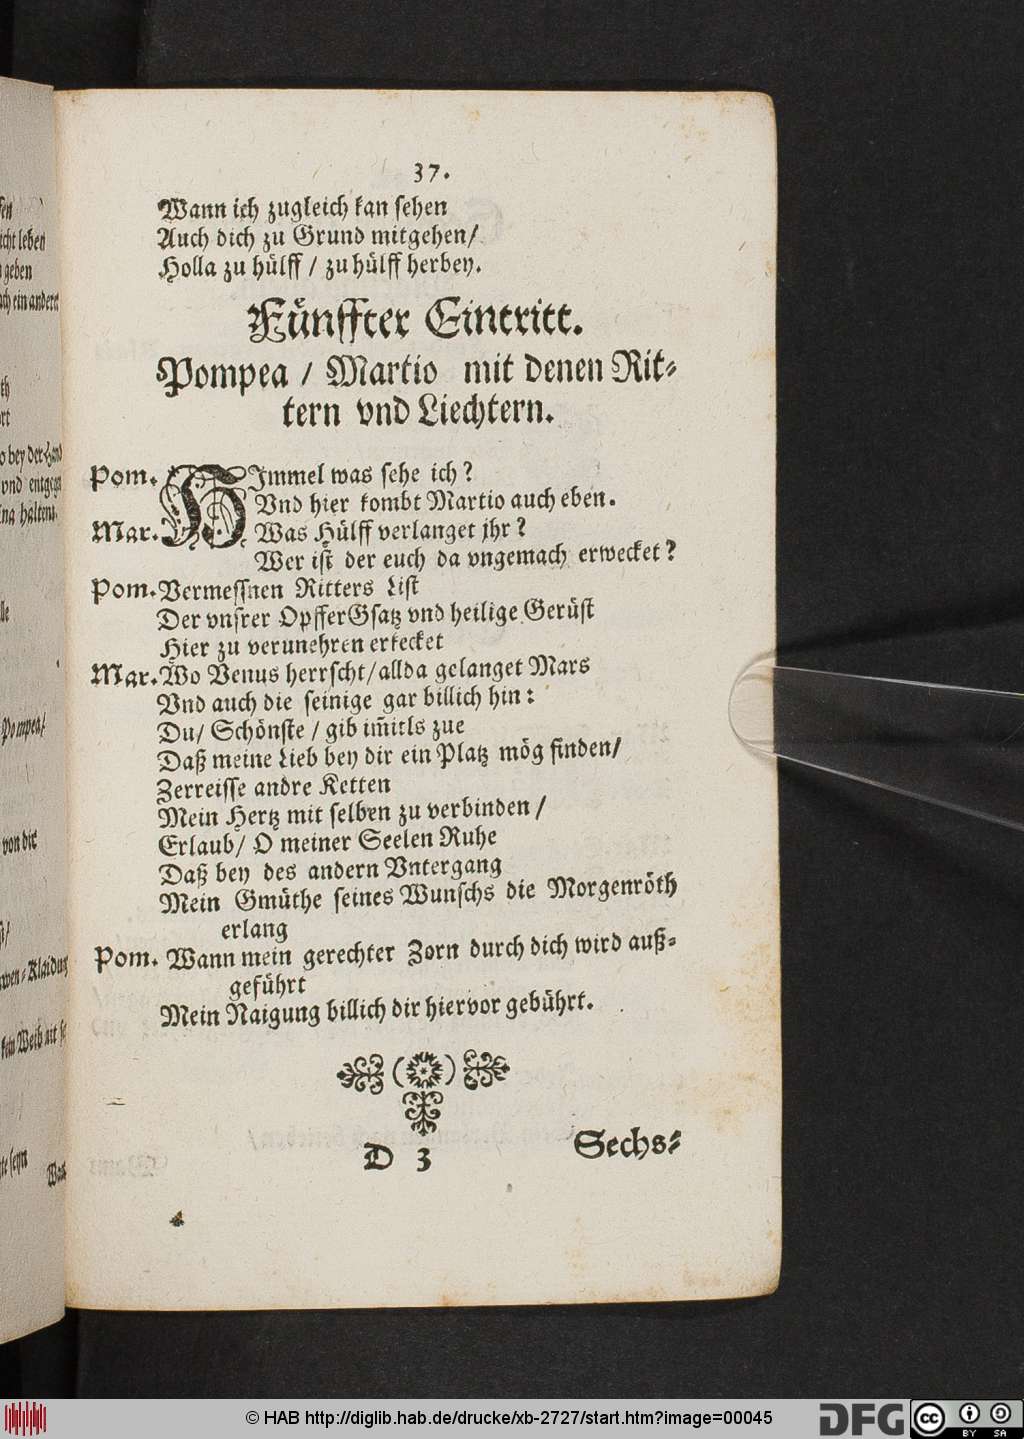 37.
Wann ich zugleich kan sehen
Auch dich zu Grund mitgehen/
Holla zu hülff / zu hülff herbey.
Fünffter Eintritt.
Pompea / Martio mit denen Rit-
tern vnd Liechtern.
Pom. HImmel was sehe ich?
Vnd hier kombt Martio auch eben.
Mar. Was Hülff verlanget jhr?
Wer ist der euch da vngemach erwecket?
Pom. Vermessnen Ritters List
Der vnsrer OpfferGsatz vnd heilige Gerüst
Hier zu verunehren erkecket
Mar. Wo Venus herrscht/allda gelanget Mars
Vnd auch die seinige gar billich hin:
Du/ Schönste / gib im̄itls zue
Daß meine Lieb bey dir ein Platz mög finden/
Zerreisse andre Ketten
Mein Hertz mit selben zu verbinden /
Erlaub/ O meiner Seelen Ruhe
Daß bey des andern Vntergang
Mein Gmüthe seines Wunschs die Morgenröth
erlang
Pom. Wann mein gerechter Zorn durch dich wird auß-
geführt
Mein Naigung billich dir hiervor gebührt.
D 3
Sechs-
icht leben
geben
ein andere
bey der Hand
vnd entgege
Pompea/
von dir
Klaidung
kein Weib
seyn
© HAB http://diglib.hab.de/drucke/xb-2727/start.htm?image=00045
DFG
cc
BY
SA